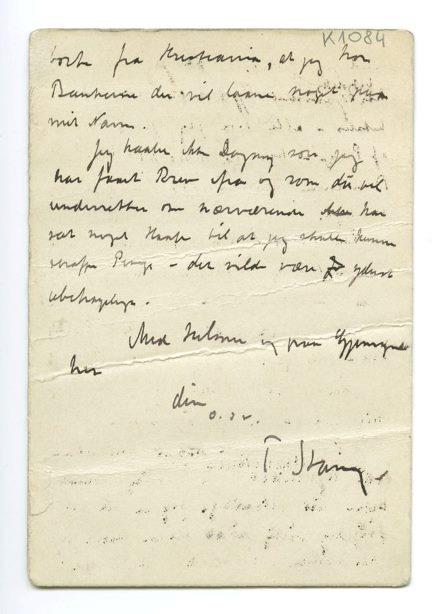 K1084
borte fra Kristiania, at jeg tror
Bankerne der vil laane noget paa
mit Navn.
Jeg haaber ikke Dagny som jeg
har faaet Brev fra og som du vil
underrette om nærværende har
sat noget Haab til at jeg skulde kunne
skaffe Penge – det vilde være yderst
ubehageligt.
Med Hilsen og paa
her
din
o. s. v.
T. Stang